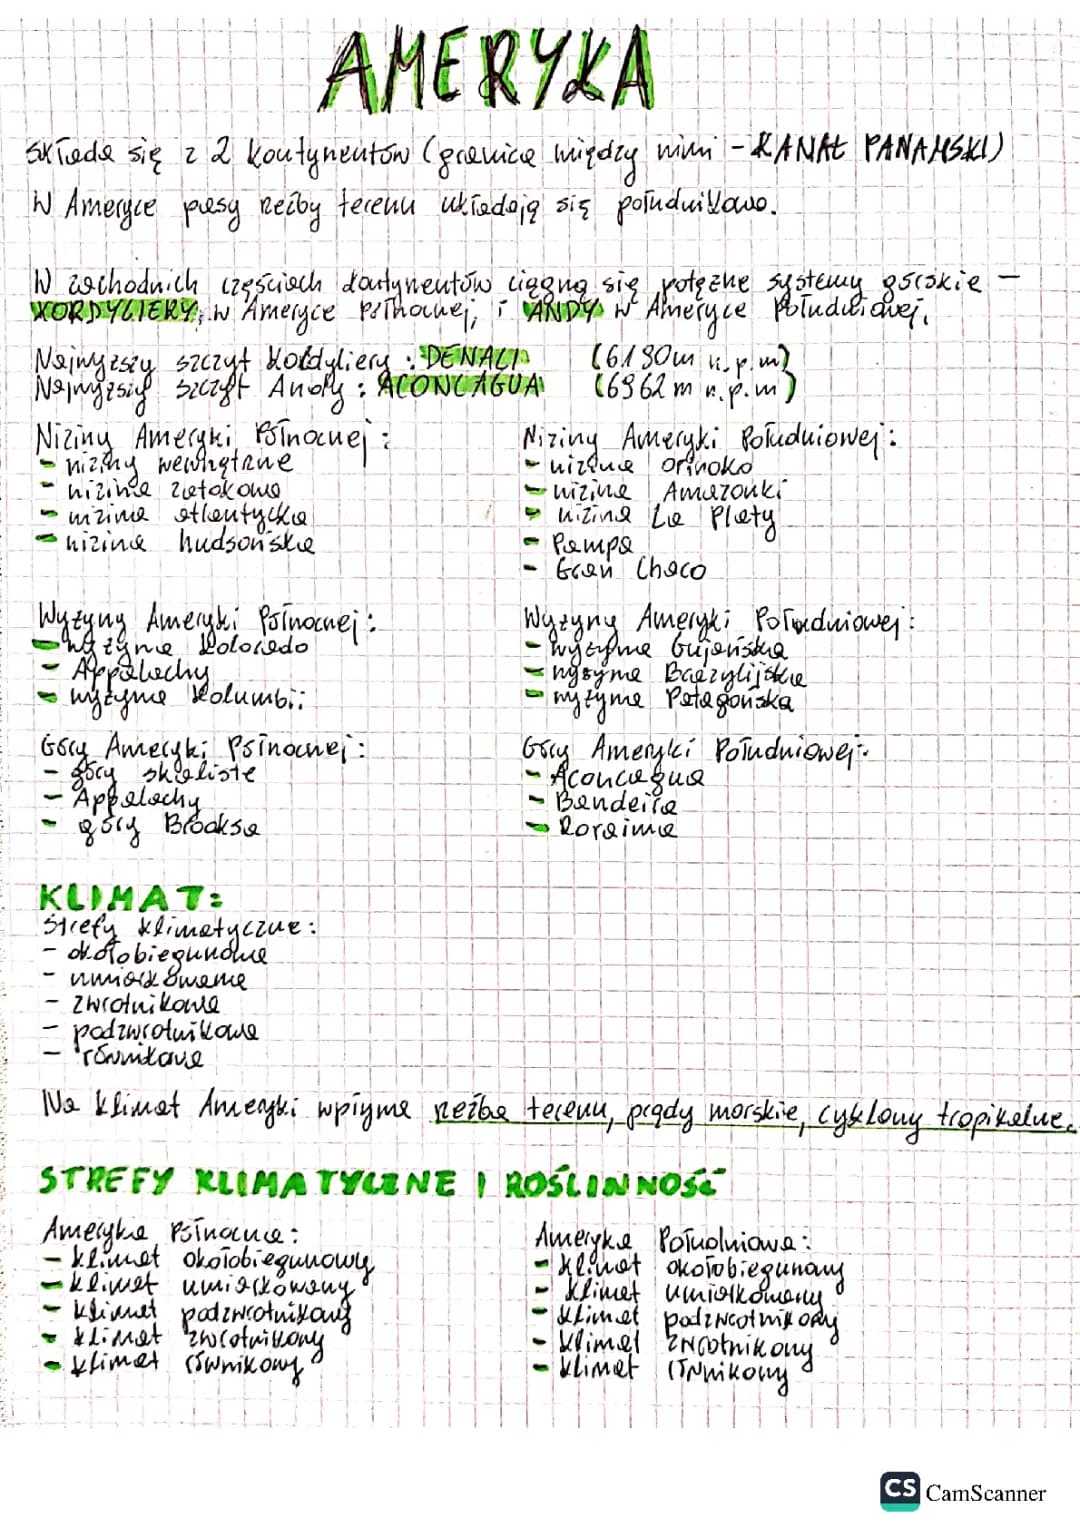 AMERYKA
Składa się z 2 kontynentów (granica między nimi - KANAŁ PANAMSKI)
W Ameryce pasy rzeźby terenu układają się południkowo.
W zachodnich częściach kontynentów ciągną się potężne systemy górskie –
KORDYLIERY, w Ameryce Północnej, i ANDY w Ameryce Południowej.
Najwyższy szczyt Kordyliery : DENALI (6190m n.p.m)
Najwyższy szczyt Andy : ACONCAGUA (6962 m n.p.m)
Niziny Ameryki Północnej :
- niziny wewnętrzne
- nizina zatokowa
- nizina atlantycka
- nizina hudsońska
Niziny Ameryki Południowej :
- nizina Orinoko
- nizina Amazonki
- nizina La Platy
- Pampa
- Gran Chaco
Wyżyny Ameryki Północnej :
- wyżyna Kolorado
- Appalachy
- wyżyna Kolumbii
Wyżyny Ameryki Południowej :
- wyżyna Gujańska
- wyżyna Brazylijska
- wyżyna Patagońska
Góry Ameryki Północnej :
- góry skaliste
- Appalachy
- góry Brooksa
Góry Ameryki Południowej:
- Aconcagua
- Bandeira
- Roraima
KLIMAT:
Strefy klimatyczne :
- okołobiegunowa
- umiarkowana
- zwrotnikowa
- podzwrotnikowa
- równikowa
Na klimat Ameryki wpływa rzeźba terenu, prądy morskie, cyklony tropikalne.
STREFY KLIMATYCZNE I ROŚLINNOŚĆ
Ameryka Północna :
- klimat okołobiegunowy
- klimat umiarkowany
- klimat podzwrotnikowy
- klimat zwrotnikowy
- klimat równikowy
Ameryka Południowa :
- klimat okołobiegunowy
- klimat umiarkowany
- klimat podzwrotnikowy
- klimat zwrotnikowy
- klimat równikowy
CS CamScanner